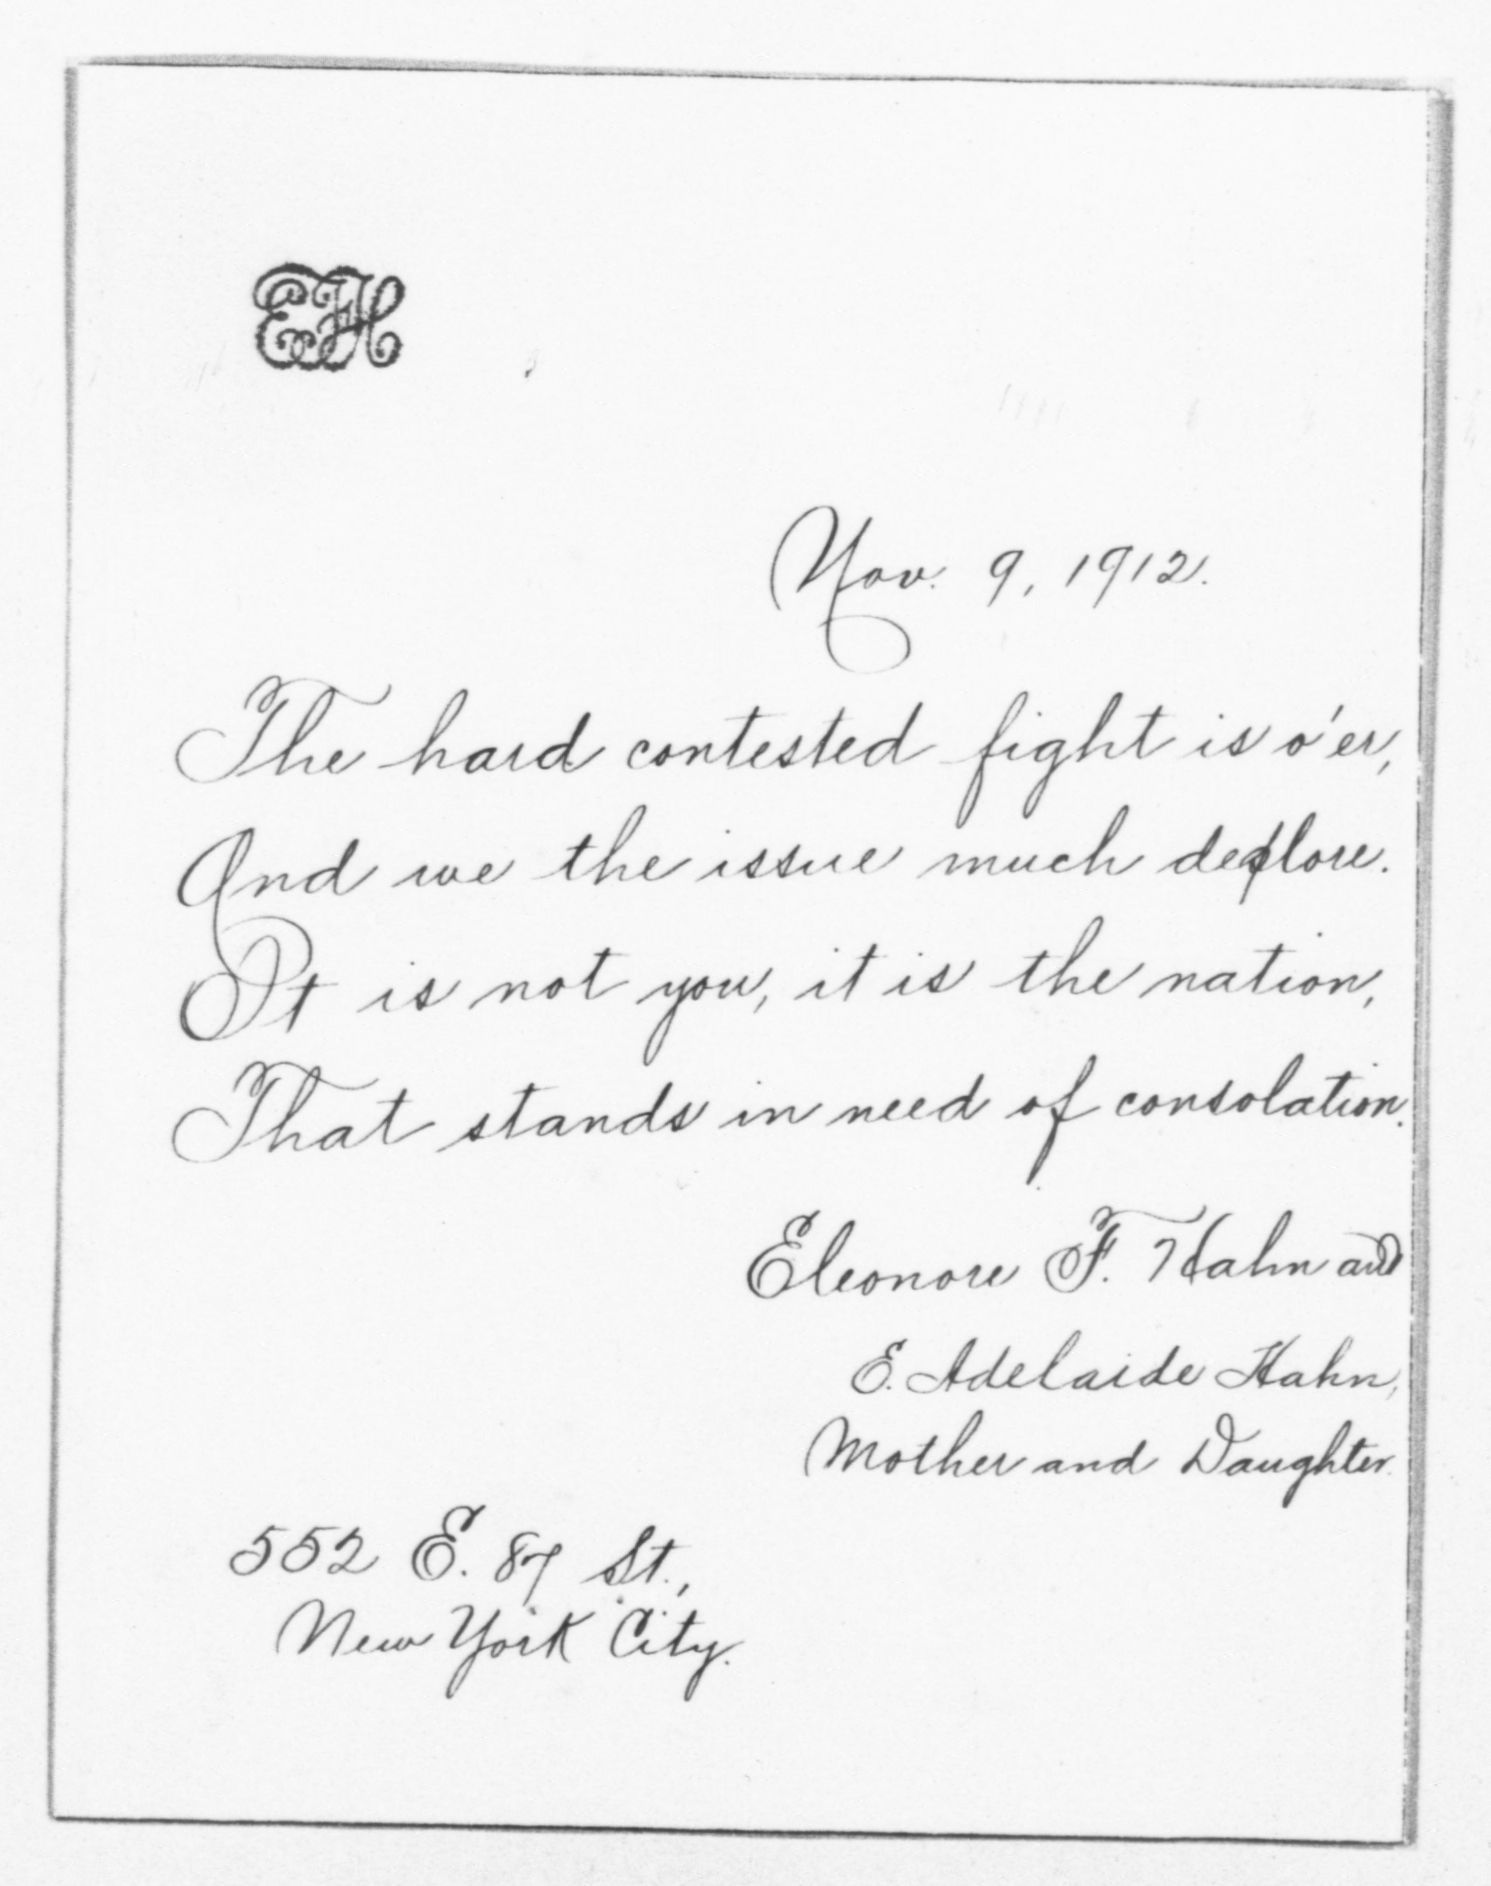 EFH
Nov. 9, 1912.
The hard contested fight is o'er,
And we the issue much deplore.
It is not you, it is the nation,
That stands in need of consolation.
Eleonore F. Hahn and
E. Adelaide Hahn,
Mother and Daughter.
552 E. 87 St.,
New York City.